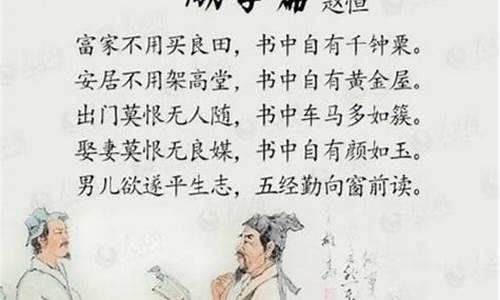 学篇 赵恒
富家不用买良田，书中自有千钟粟。
安居不用架高堂，书中自有黄金屋。
出门莫恨无人随，书中车马多如簇。
娶妻莫恨无良媒，书中自有颜如玉。
男儿欲遂平生志，五经勤向窗前读。